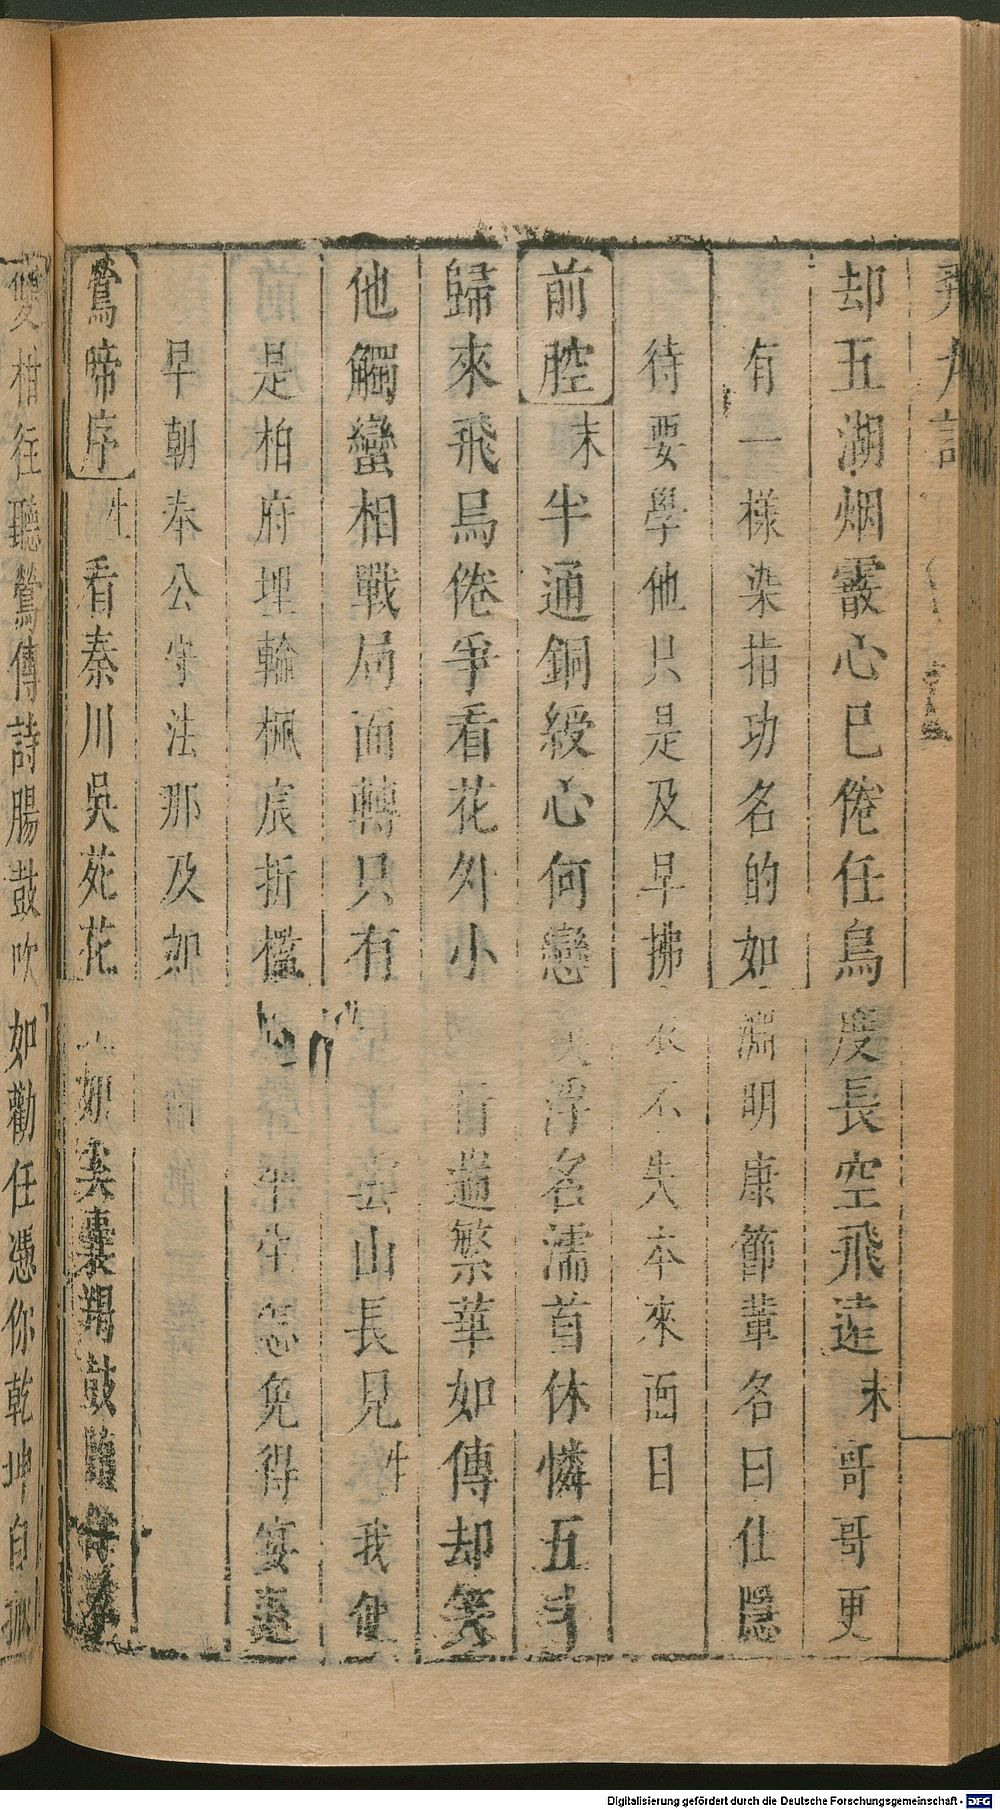 飛丸記
却五湖烟霞心已倦任鳥度長空飛遠末哥哥更
有一樣染指功名的如淵明康節輩名曰仕隱
待要學他只是及早拂衣不失本來面目
前腔末半通銅綬心何戀浮名濡首休憐五斗
歸來飛鳥倦爭看花外小行遊繁華如傳却笑
他觸蠻相戰局面轉只有雲山長見生我便
是柏府埋輪楓宸折檻生怎免得宴
早朝奉公守法那及如
鶯啼序生看秦川吳苑花如奚囊羯鼓
雙柑往聽鶯傳詩腸鼓吹如勸任憑你乾坤自
Digitalisierung gefördert durch die Deutsche Forschungsgemeinschaft - DFG